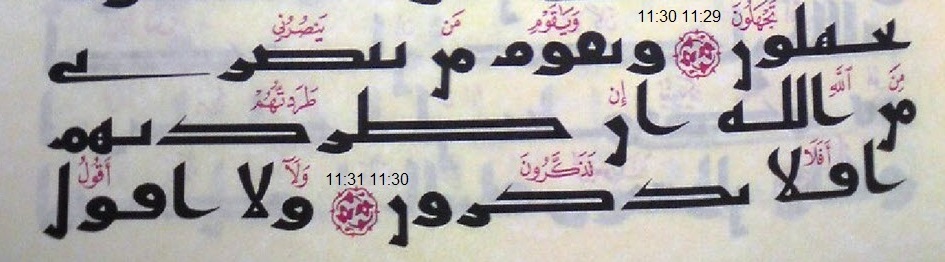 تَجْهَلُونَ 11:30 11:29 وَيَٰقَوْمِ مَن يَنصُرُنِي
تجهلون ويقوم من ينصرني
مِنَ ٱللَّهِ إِن طَرَدتُّهُمْ
من الله ان طردتهم
أَفَلَا تَذَكَّرُونَ 11:31 11:30 وَلَآ أَقُولُ
افلا تذكرون ولا اقول